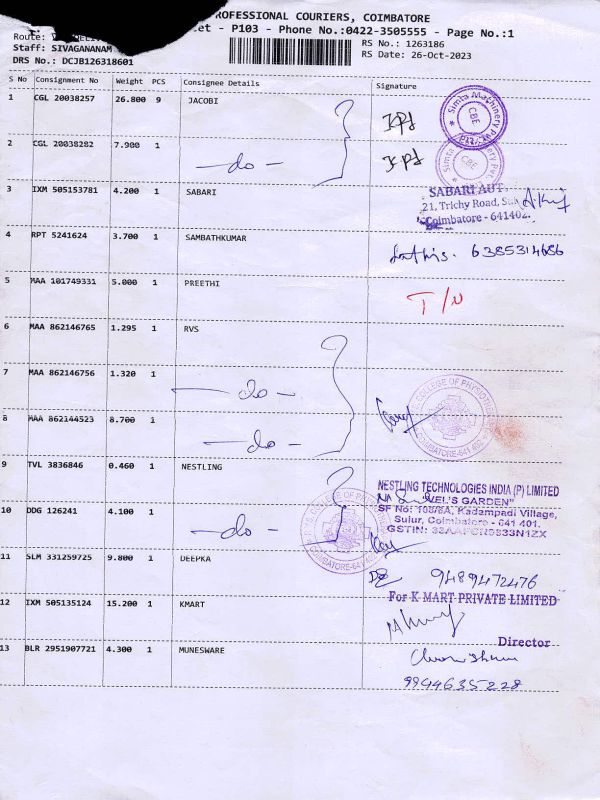 PROFESSIONAL COURIERS, COIMBATORE
- P103 - Phone No.:0422-3505555 - Page No.:1
Route:
Staff: SIVAGANANAM
DRS No.: DCJB126318601
RS No.: 1263186
RS Date: 26-Oct-2023
S No Consignment No Weight PCS Consignee Details Signature
1 CGL 20038257 26.800 9 JACOBI
2 CGL 20038282 7.900 1 -do-
3 IXM 505153781 4.200 1 SABARI
SABARI AUT
21, Trichy Road,
Coimbatore - 641402.
4 RPT 5241624 3.700 1 SAMBATHKUMAR 6385314686
5 MAA 101749331 5.000 1 PREETHI T/N
6 MAA 862146765 1.295 1 RVS
7 MAA 862146756 1.320 1 -do-
COLLEGE OF PHYSIOTHE
COIMBATORE-641
8 MAA 862144523 8.700 1 -do-
9 TVL 3836846 0.460 1 NESTLING
NESTLING TECHNOLOGIES INDIA (P) LIMITED
"VEL'S GARDEN"
SF No: 108/6A, Kadampadi Village,
Sulur, Coimbatore - 641 401.
10 DDG 126241 4.100 1 -do-
GSTIN: 33AAFCN9833N1ZX
11 SLM 331259725 9.800 1 DEEPKA 9489472476
12 IXM 505135124 15.200 1 KMART
For K MART PRIVATE LIMITED
Director
13 BLR 2951907721 4.300 1 MUNESWARE
9944635228